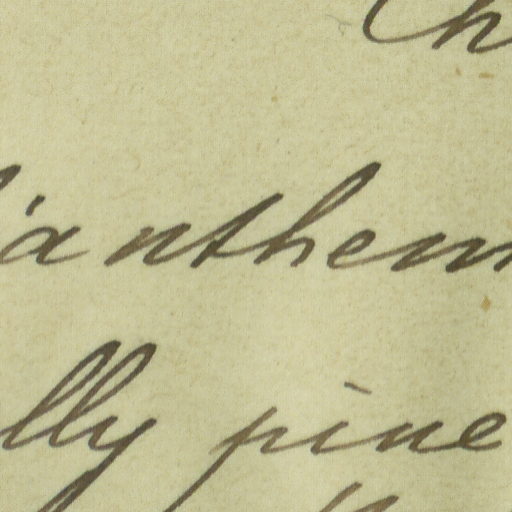 Ch
ianthem
lly pine